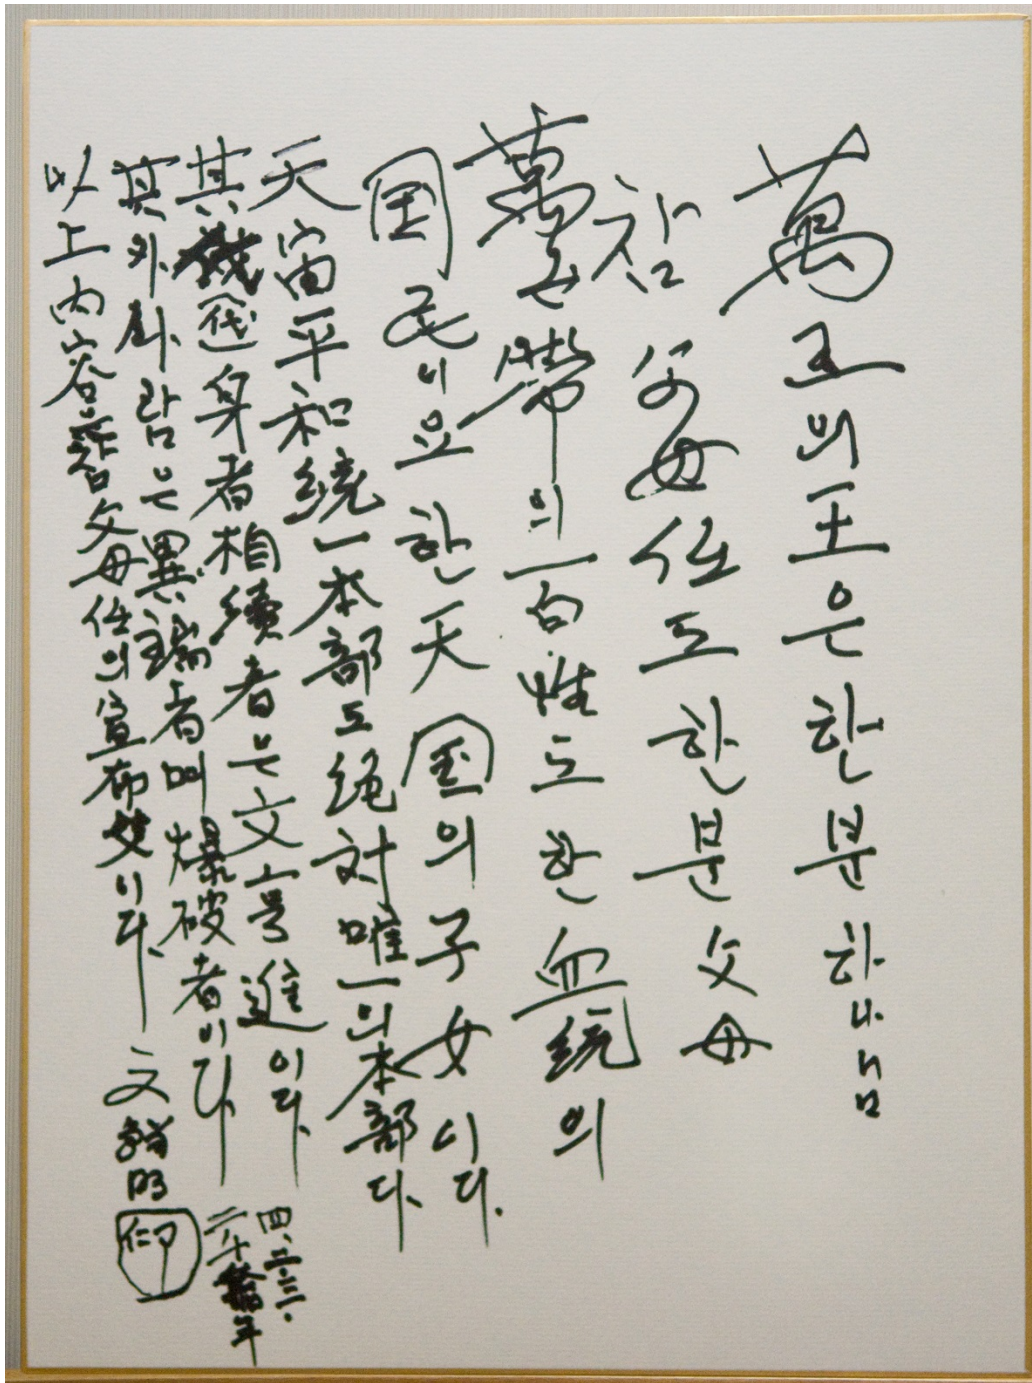 萬王의 王은 한분 하나님
참父母任도 한분 父母
萬세帶의 百性도 한血統의
国民이요 한天国의子女이다.
天宙平和統一本部도 絶対唯一의 本部다.
其 身者相續者는 文亨進이다.
其外사람은 異端者며 爆破者이다.
以上内容 父母任의 宣布文이다.
文鮮明
印
四.二三.
二千拾年